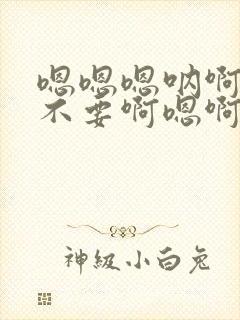 嗯嗯嗯呐啊
不要啊嗯啊
神級小白兔